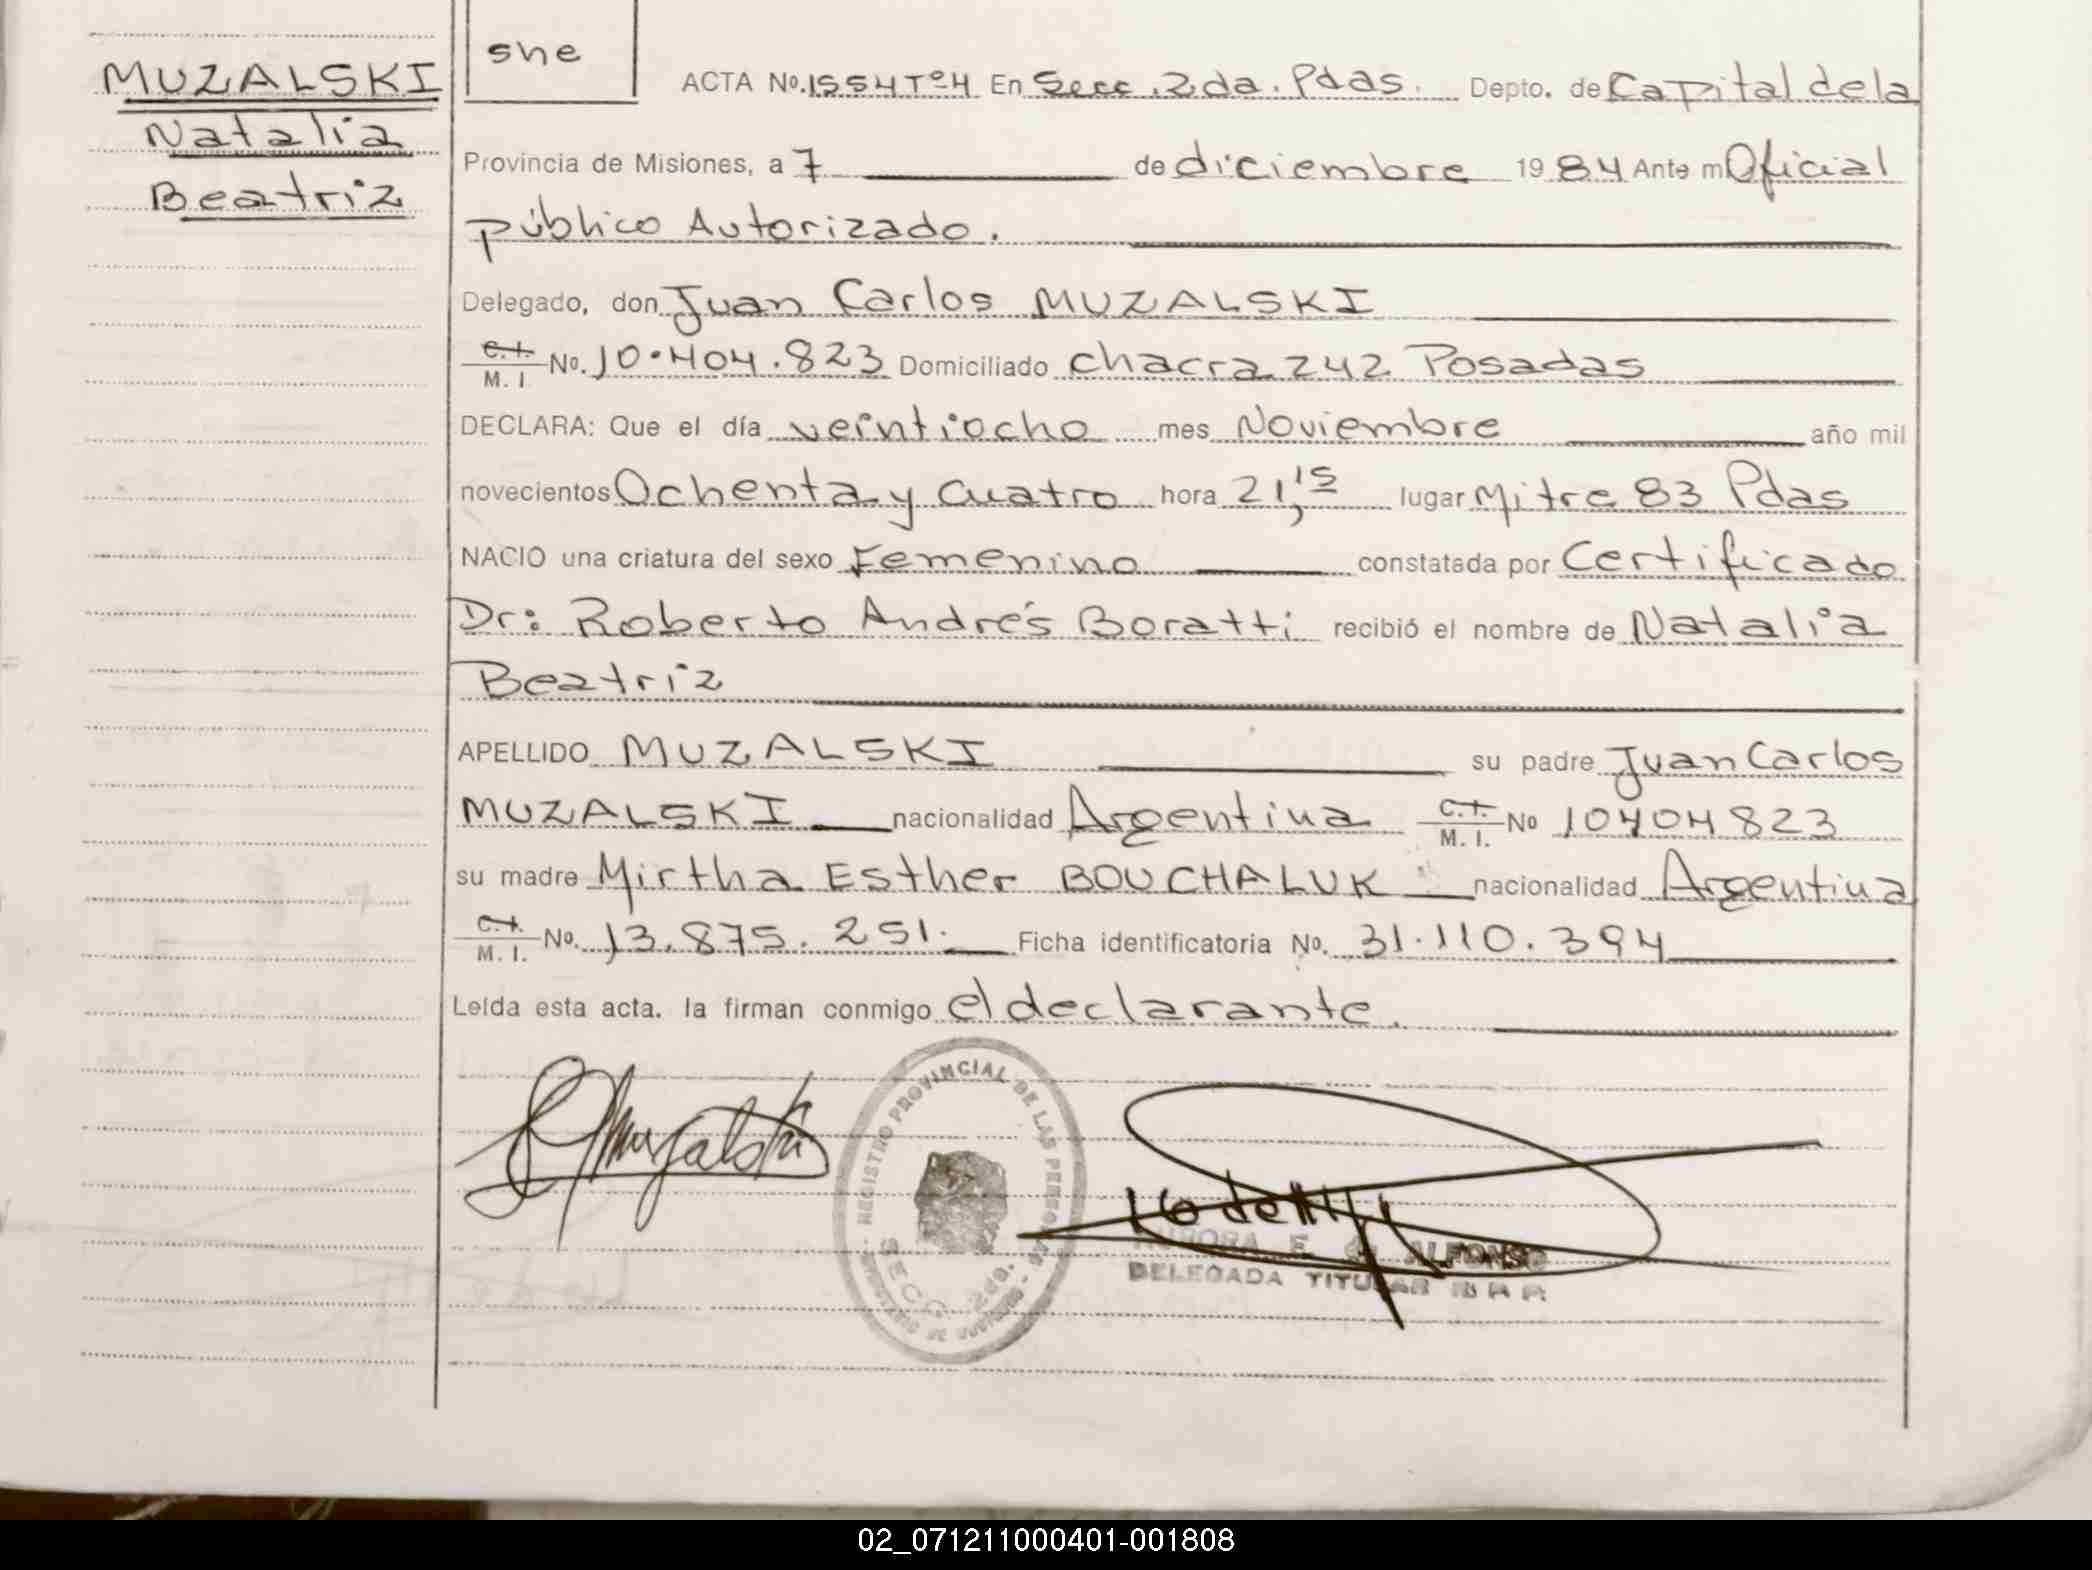 MUZALSKI
Natalia
Beatriz
sne
ACTA No. 1554 Tº 4 En Secc. 2da. Pdas. Depto. de Capital de la
Provincia de Misiones, a 7 de diciembre 19 84 Ante m Oficial
público Autorizado.
Delegado, don Juan Carlos MUZALSKI
C.I. M. I. No. 10.404.823 Domiciliado chacra 242 Posadas
DECLARA: Que el día veintiocho mes Noviembre año mil
novecientos Ochenta y Cuatro hora 21,15 lugar Mitre 83 Pdas
NACIO una criatura del sexo Femenino constatada por Certificado
Dr: Roberto Andrés Boratti recibió el nombre de Natalia
Beatriz
APELLIDO MUZALSKI su padre Juan Carlos
MUZALSKI nacionalidad Argentina C.I. M. I. No 10404823
su madre Mirtha Esther BOUCHALUK nacionalidad Argentina
C.I. M. I. No. 13.875.251. Ficha identificatoria No. 31.110.394
Leída esta acta. la firman conmigo el declarante.
REGISTRO PROVINCIAL DE LAS PERSONAS
SECC. 2da.
AURORA E. G. ALFONSO
DELEGADA TITULAR R P P
02_071211000401-001808